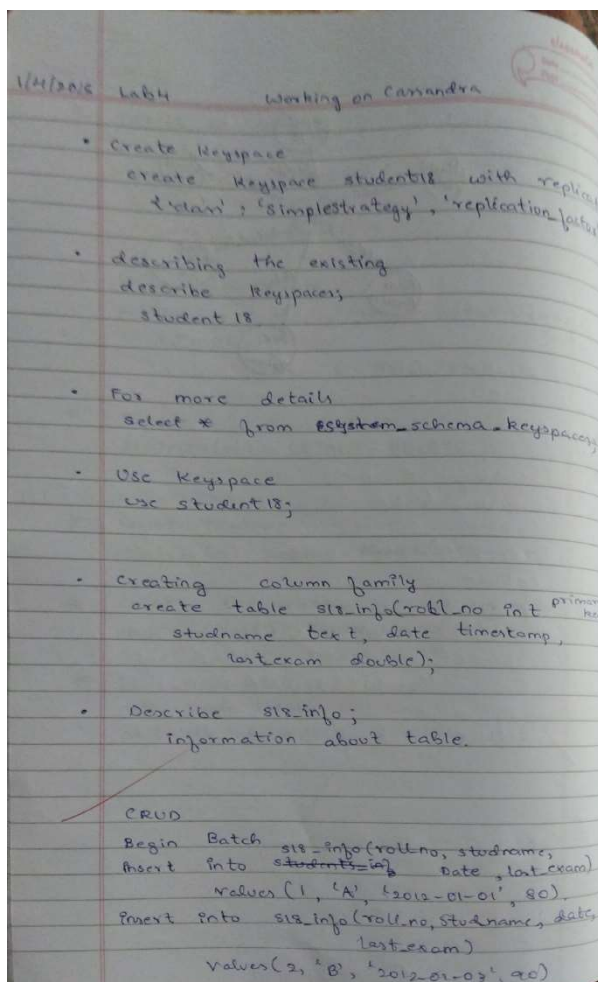 1/4/2018 Lab4 Working on Cassandra
• Create Keyspace
create Keyspace student18 with replica
{'class' : 'simplestrategy', 'replication_factor
• describing the existing
describe Keyspaces;
student 18
• For more details
select * from system_schema.keyspaces;
• Use Keyspace
use student18;
• Creating column family
create table s18_info(roll_no int primary key
studname text, date timestamp,
last_exam double);
• Describe s18_info;
information about table.
CRUD
Begin Batch
insert into s18_info(rollno, studname,
Date, last_exam)
values (1, 'A', '2012-01-01', 80)
insert into s18_info(roll_no, studname, date,
last_exam)
values(2, 'B', '2012-01-03', 90)